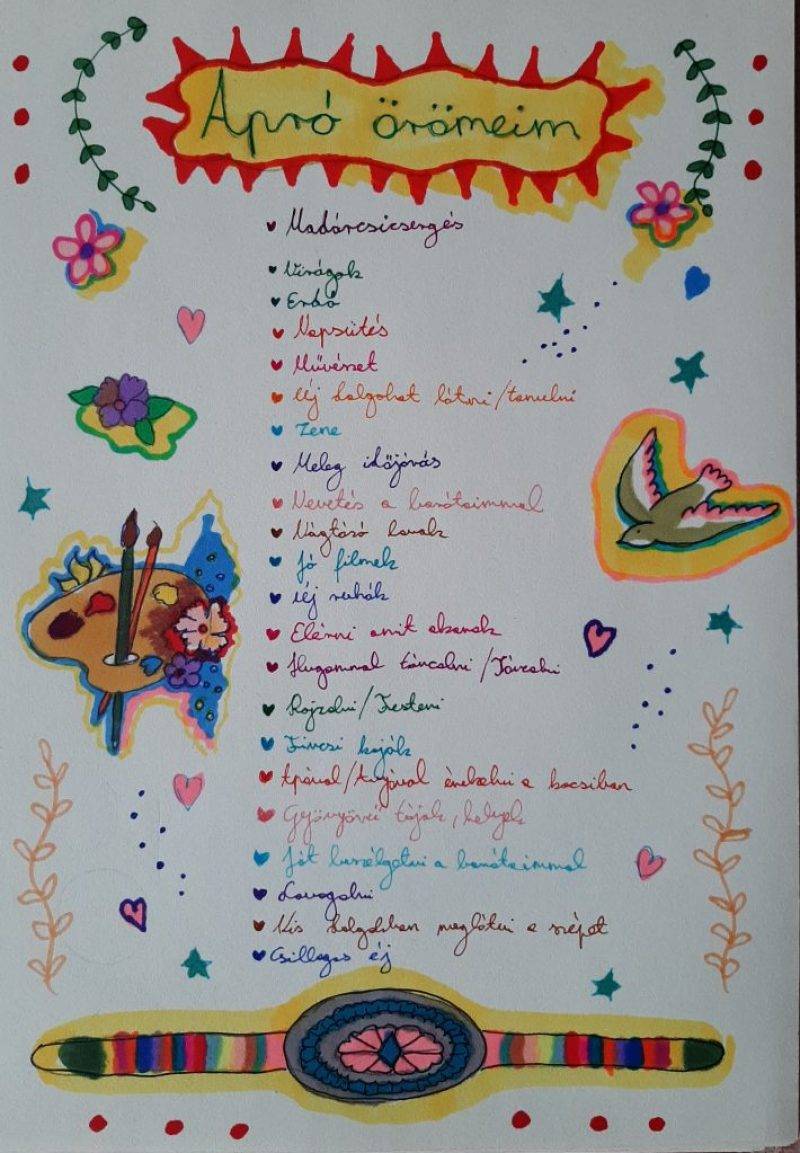 Apró örömeim
Madárcsicsergés
Virágok
Erdő
Napsütés
Művészet
Új dolgokat látni/tanulni
Zene
Meleg időjárás
Nevetés a barátaimmal
Vágtásó lovak
Jó filmek
Új ruhák
Elérni amit akarok
Hugommal táncolni/Tárcolni
Rajzolni/Festeni
Fincsi kaják
Apával/Anyával énekelni a kocsiban
Gyönyörű tájak, helyek
Jót beszélgetni a barátaimmal
Lovagolni
Kis dolgokban meglátni a szépet
Csillagos éj